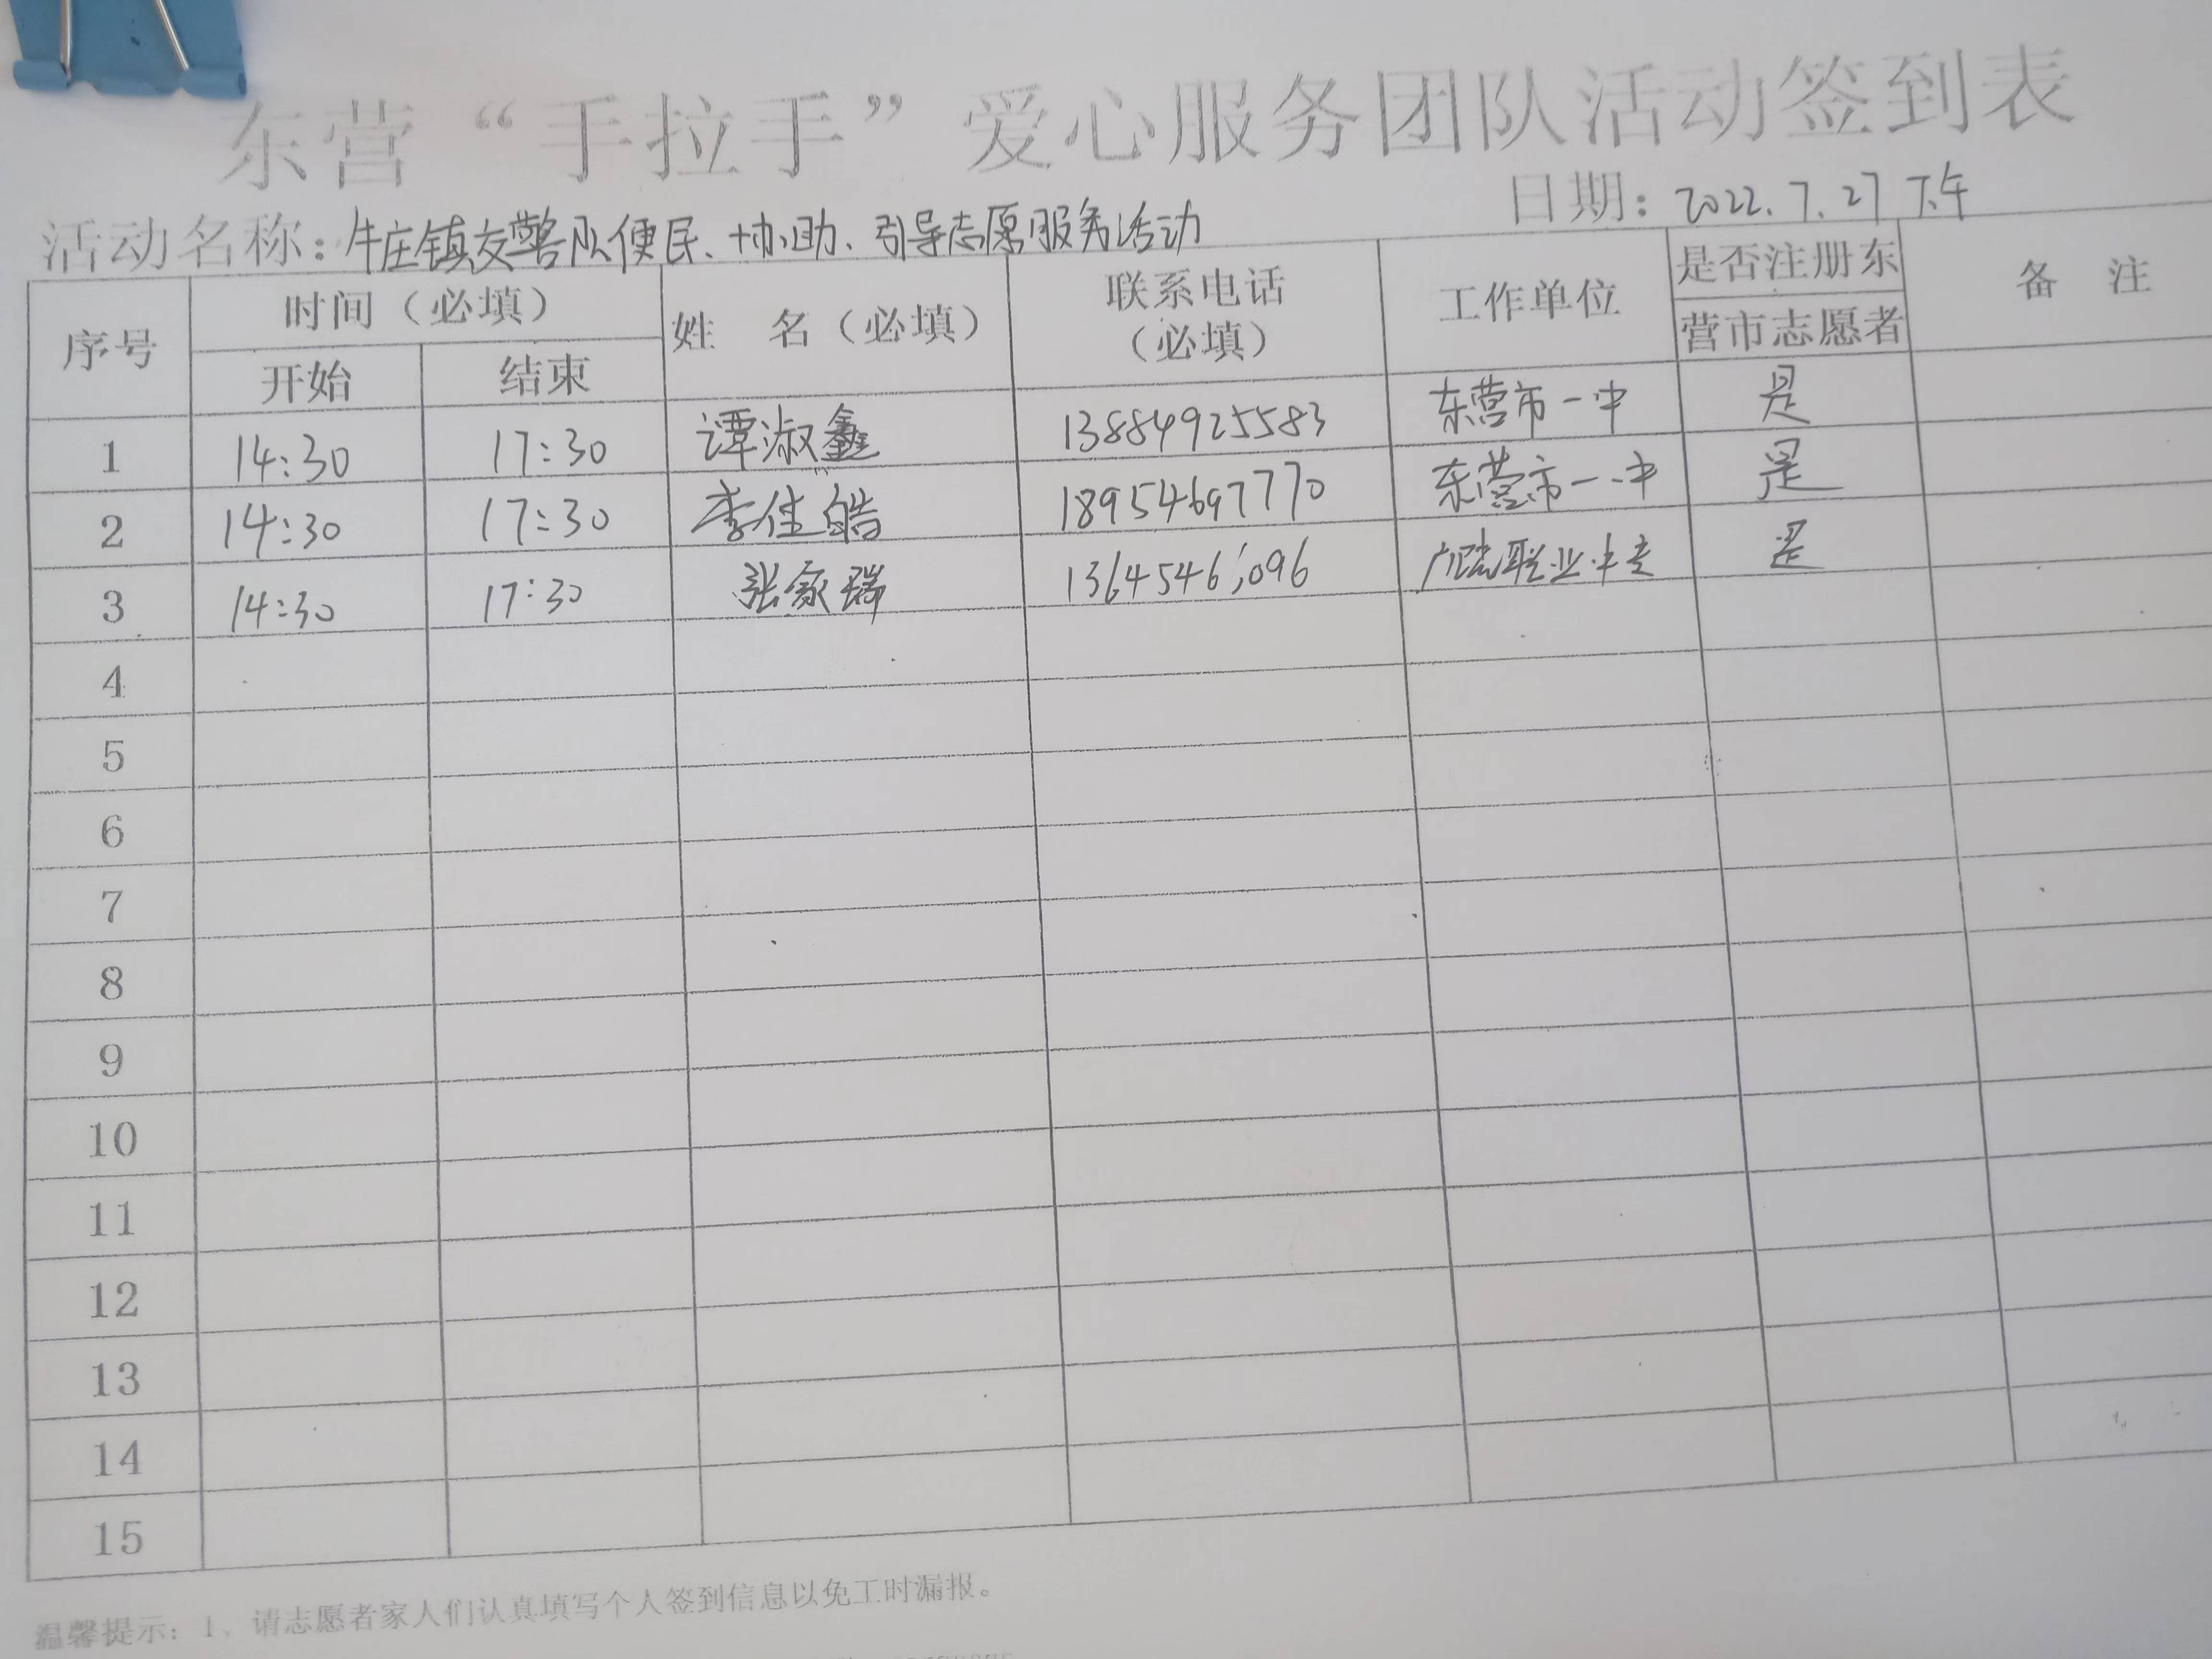 东营“手拉手”爱心服务团队活动签到表
日期：2022.7.27 下午
活动名称：牛庄镇交警队便民、协助、引导志愿服务活动
序号 时间（必填） 姓 名（必填） 联系电话（必填） 工作单位 是否注册东营市志愿者 备 注
开始 结束
1 14:30 17:30 谭淑鑫 13884925583 东营市一中 是
2 14:30 17:30 李佳皓 18954697770 东营市一中 是
3 14:30 17:30 张家瑞 职业中专 是
4
5
6
7
8
9
10
11
12
13
14
15
温馨提示：1、请志愿者家人们认真填写个人签到信息以免工时漏报。